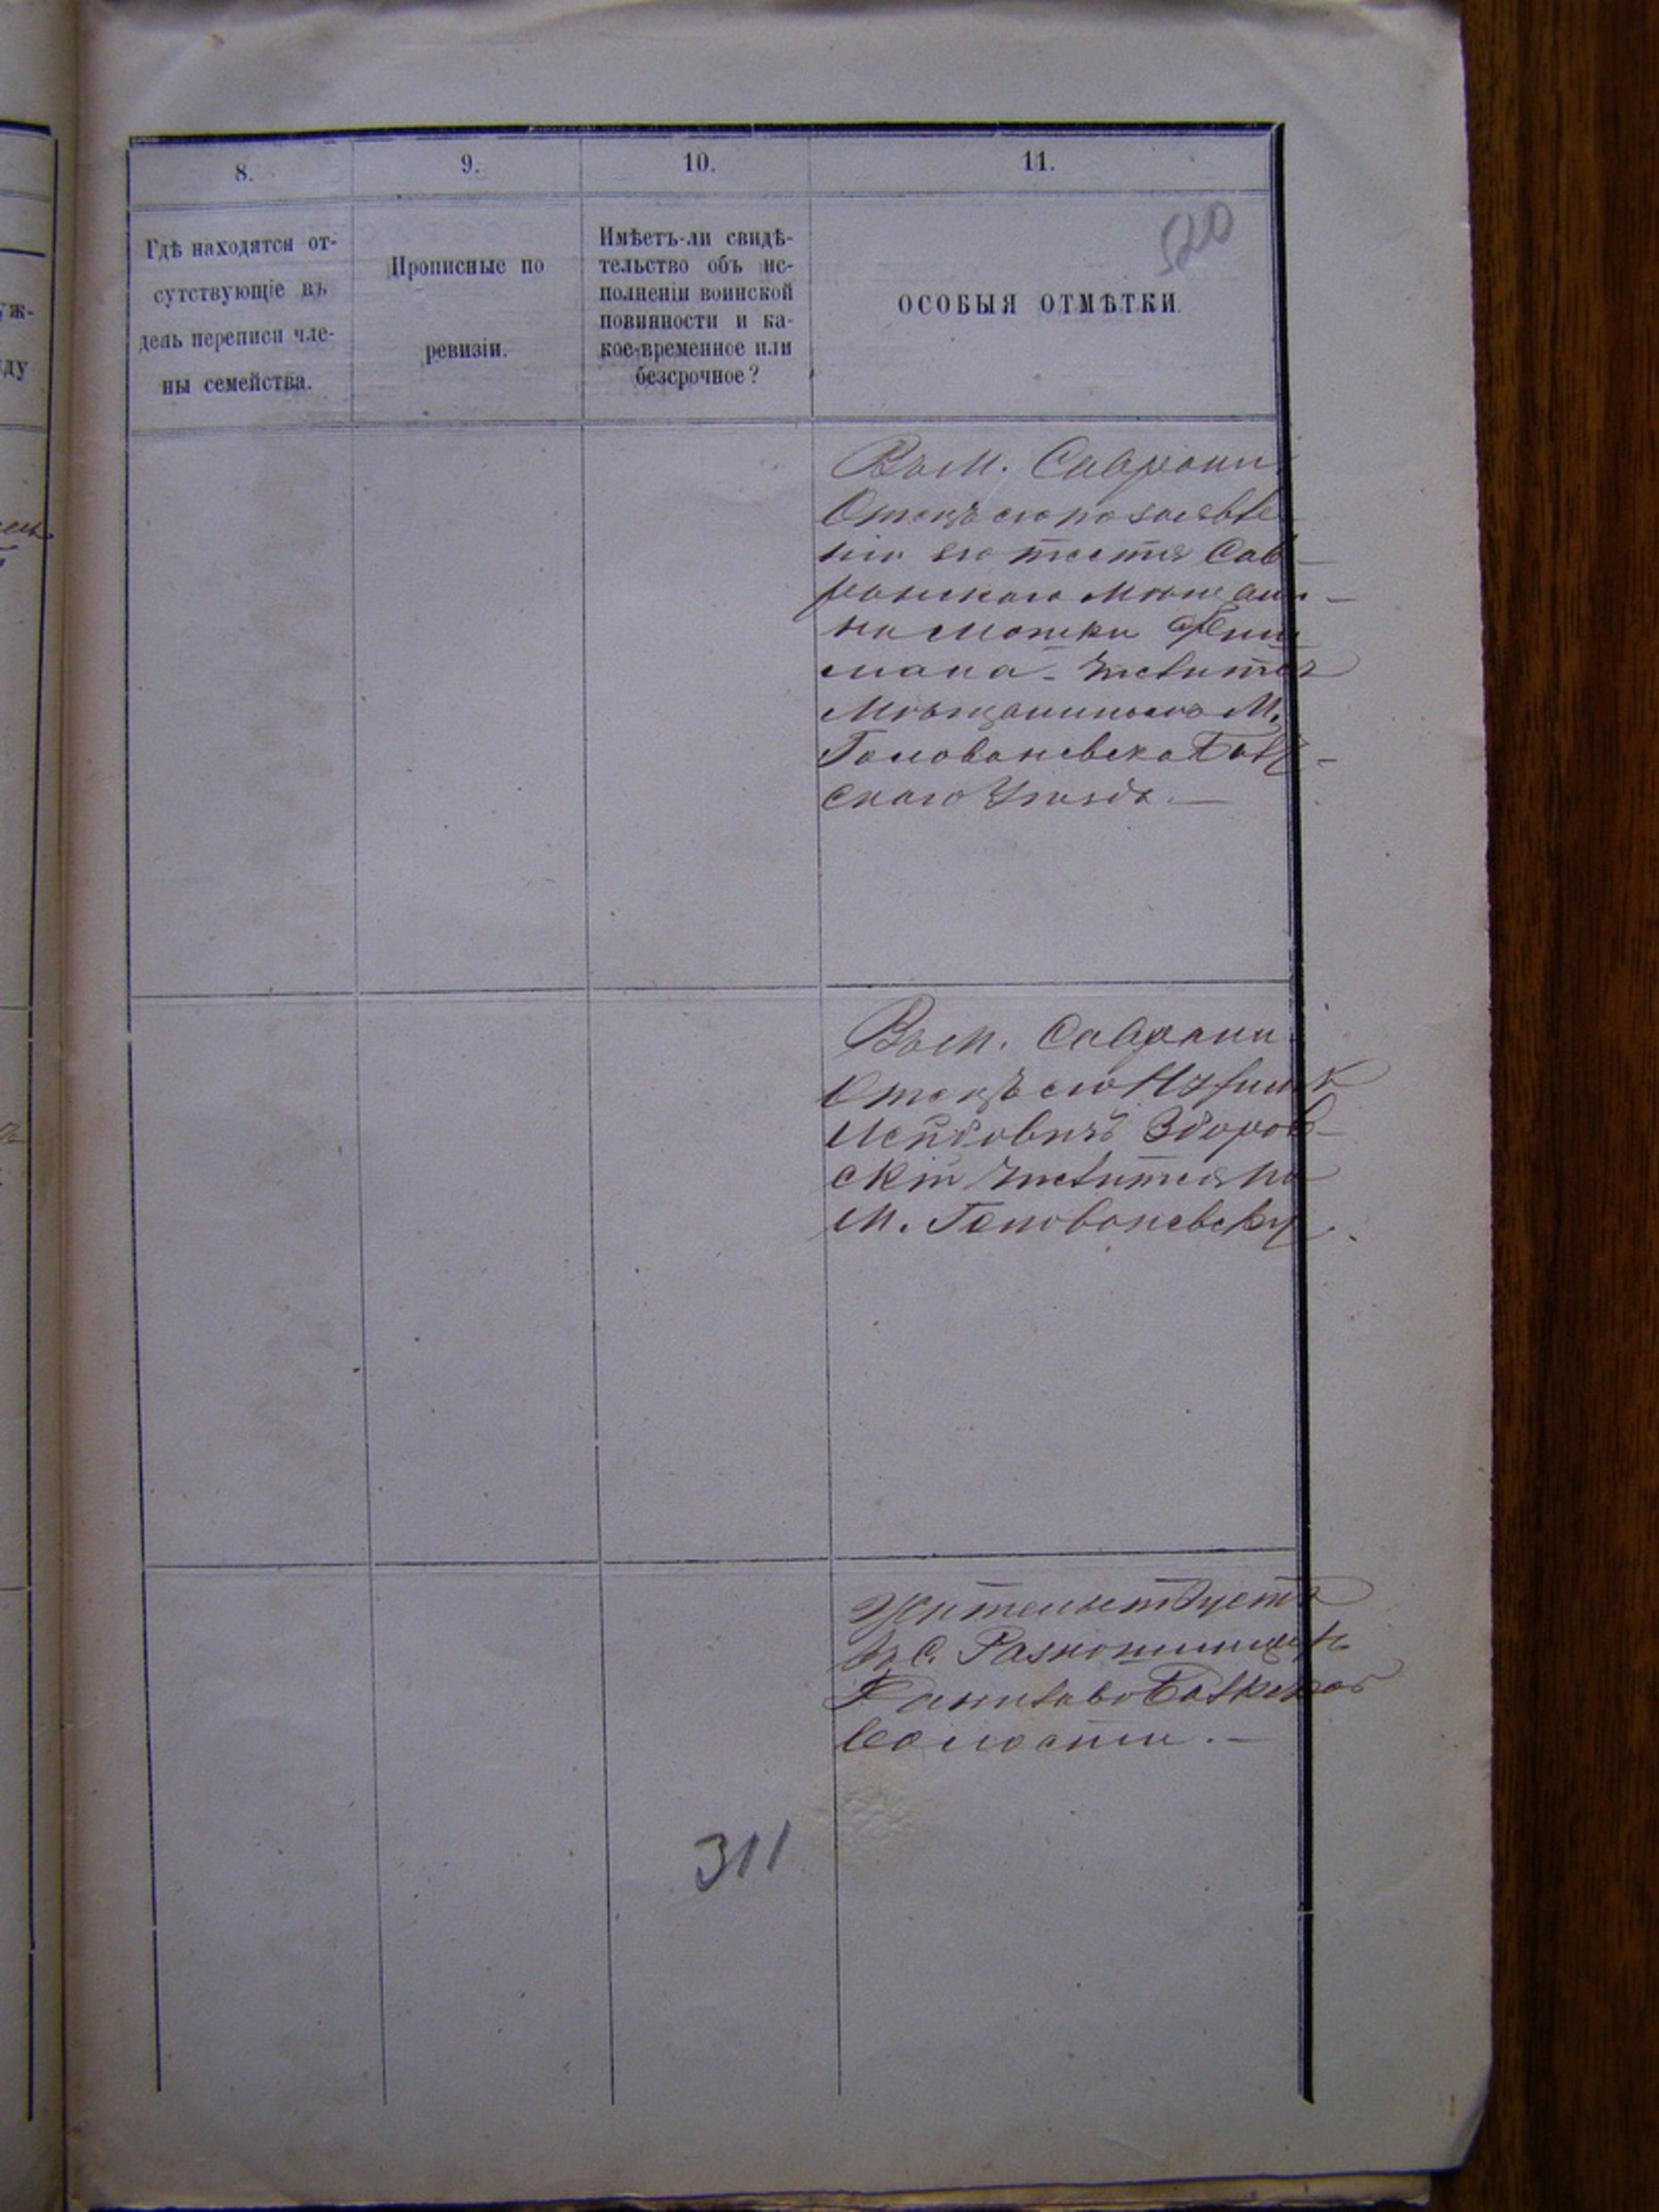 8. 9. 10. 11.
520
Гдѣ находятся от-
сутствующіе въ
день переписи чле-
ны семейства.
Прописные по
ревизіи.
Имѣетъ-ли свидѣ-
тельство объ ис-
полненіи воинской
повинности и ка-
кое-временное или
безсрочное?
ОСОБЫЯ ОТМѢТКИ.
Въ м. Саврани
Отецъ его по заявле-
нію его тестя Сав-
ранскаго Мѣщани-
на Мошки
мана числится
Мѣщаниномъ М.
Голованевска Балт-
скаго Уѣзда.—
Въ м. Саврани
Отецъ его Ицик
Лейбовичъ Здоров-
скій числится по
М. Голованевску.
Жительствуетъ
въ С.
волости.—
311